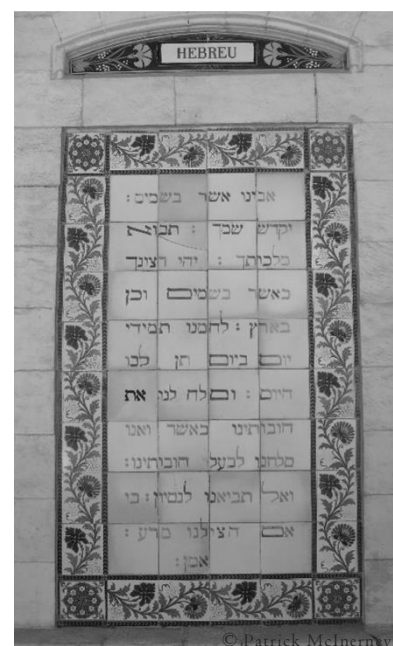 HEBREU
אבינו אשר בשמים :
יקדש שמך : תבוא
מלכותך : יהי רצונך
כאשר בשמים וכן
בארץ : לחמנו תמידי
יום ביום תן לנו
היום : וסלח לנו את
חובותינו כאשר ואנו
סלחנו לבעלי חובותינו :
ואל תביאנו לנסיון : כי
אם הצילנו מרע :
אמן :
© Patrick McInerney